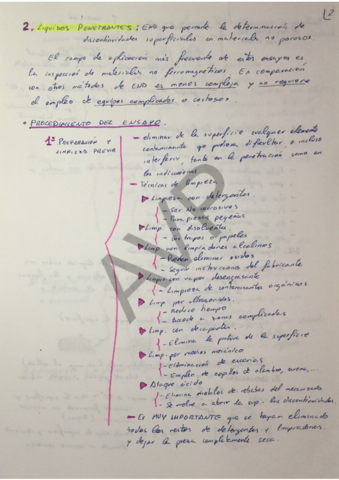 2
2. LIQUIDOS PENETRANTES: END que permite la determinación de
discontinuidades superficiales en materiales no porosos
El campo de aplicación más frecuente de estos ensayos es
la inspección de materiales no ferromagnéticos. En comparación
con otros métodos de END es menos compleja y no requiere
el empleo de equipos complicados o costosos.
* PROCEDIMIENTO DEL ENSAYO.
1º PREPARACIÓN Y
LIMPIEZA PREVIA
- eliminar de la superficie cualquier elemento
contaminante que pudiera dificultar o incluso
interferir, tanto en la penetración como en
las indicaciones
- Técnicas de limpieza
Limpieza con detergentes
- Ser no corrosivos
- Para piezas pequeñas
Limp. con disolventes
- Con trapos o papeles
Limp. con limpiadores alcalinos
- Puede eliminar óxidos
- Seguir instrucciones del fabricante
Limpieza con vapor desengrasante
- Limpieza de contaminantes orgánicos
Limp. por ultrasonidos.
- Reduce tiempo
- zonas complicadas
Limp. con decapantes.
- Elimina la pintura de la superficie
Limp. por medios mecánicos
- Eliminación de escorias
- Empleo de cepillos de alambre, arena,...
Ataque ácido
- Eliminar metales de restos del mecanizado
- Se vuelve a abrir la sup. las discontinuidades.
- ES MUY IMPORTANTE que se hayan eliminado
todos los restos de detergentes y limpiadores
y dejar la pieza completamente seca.
AVP